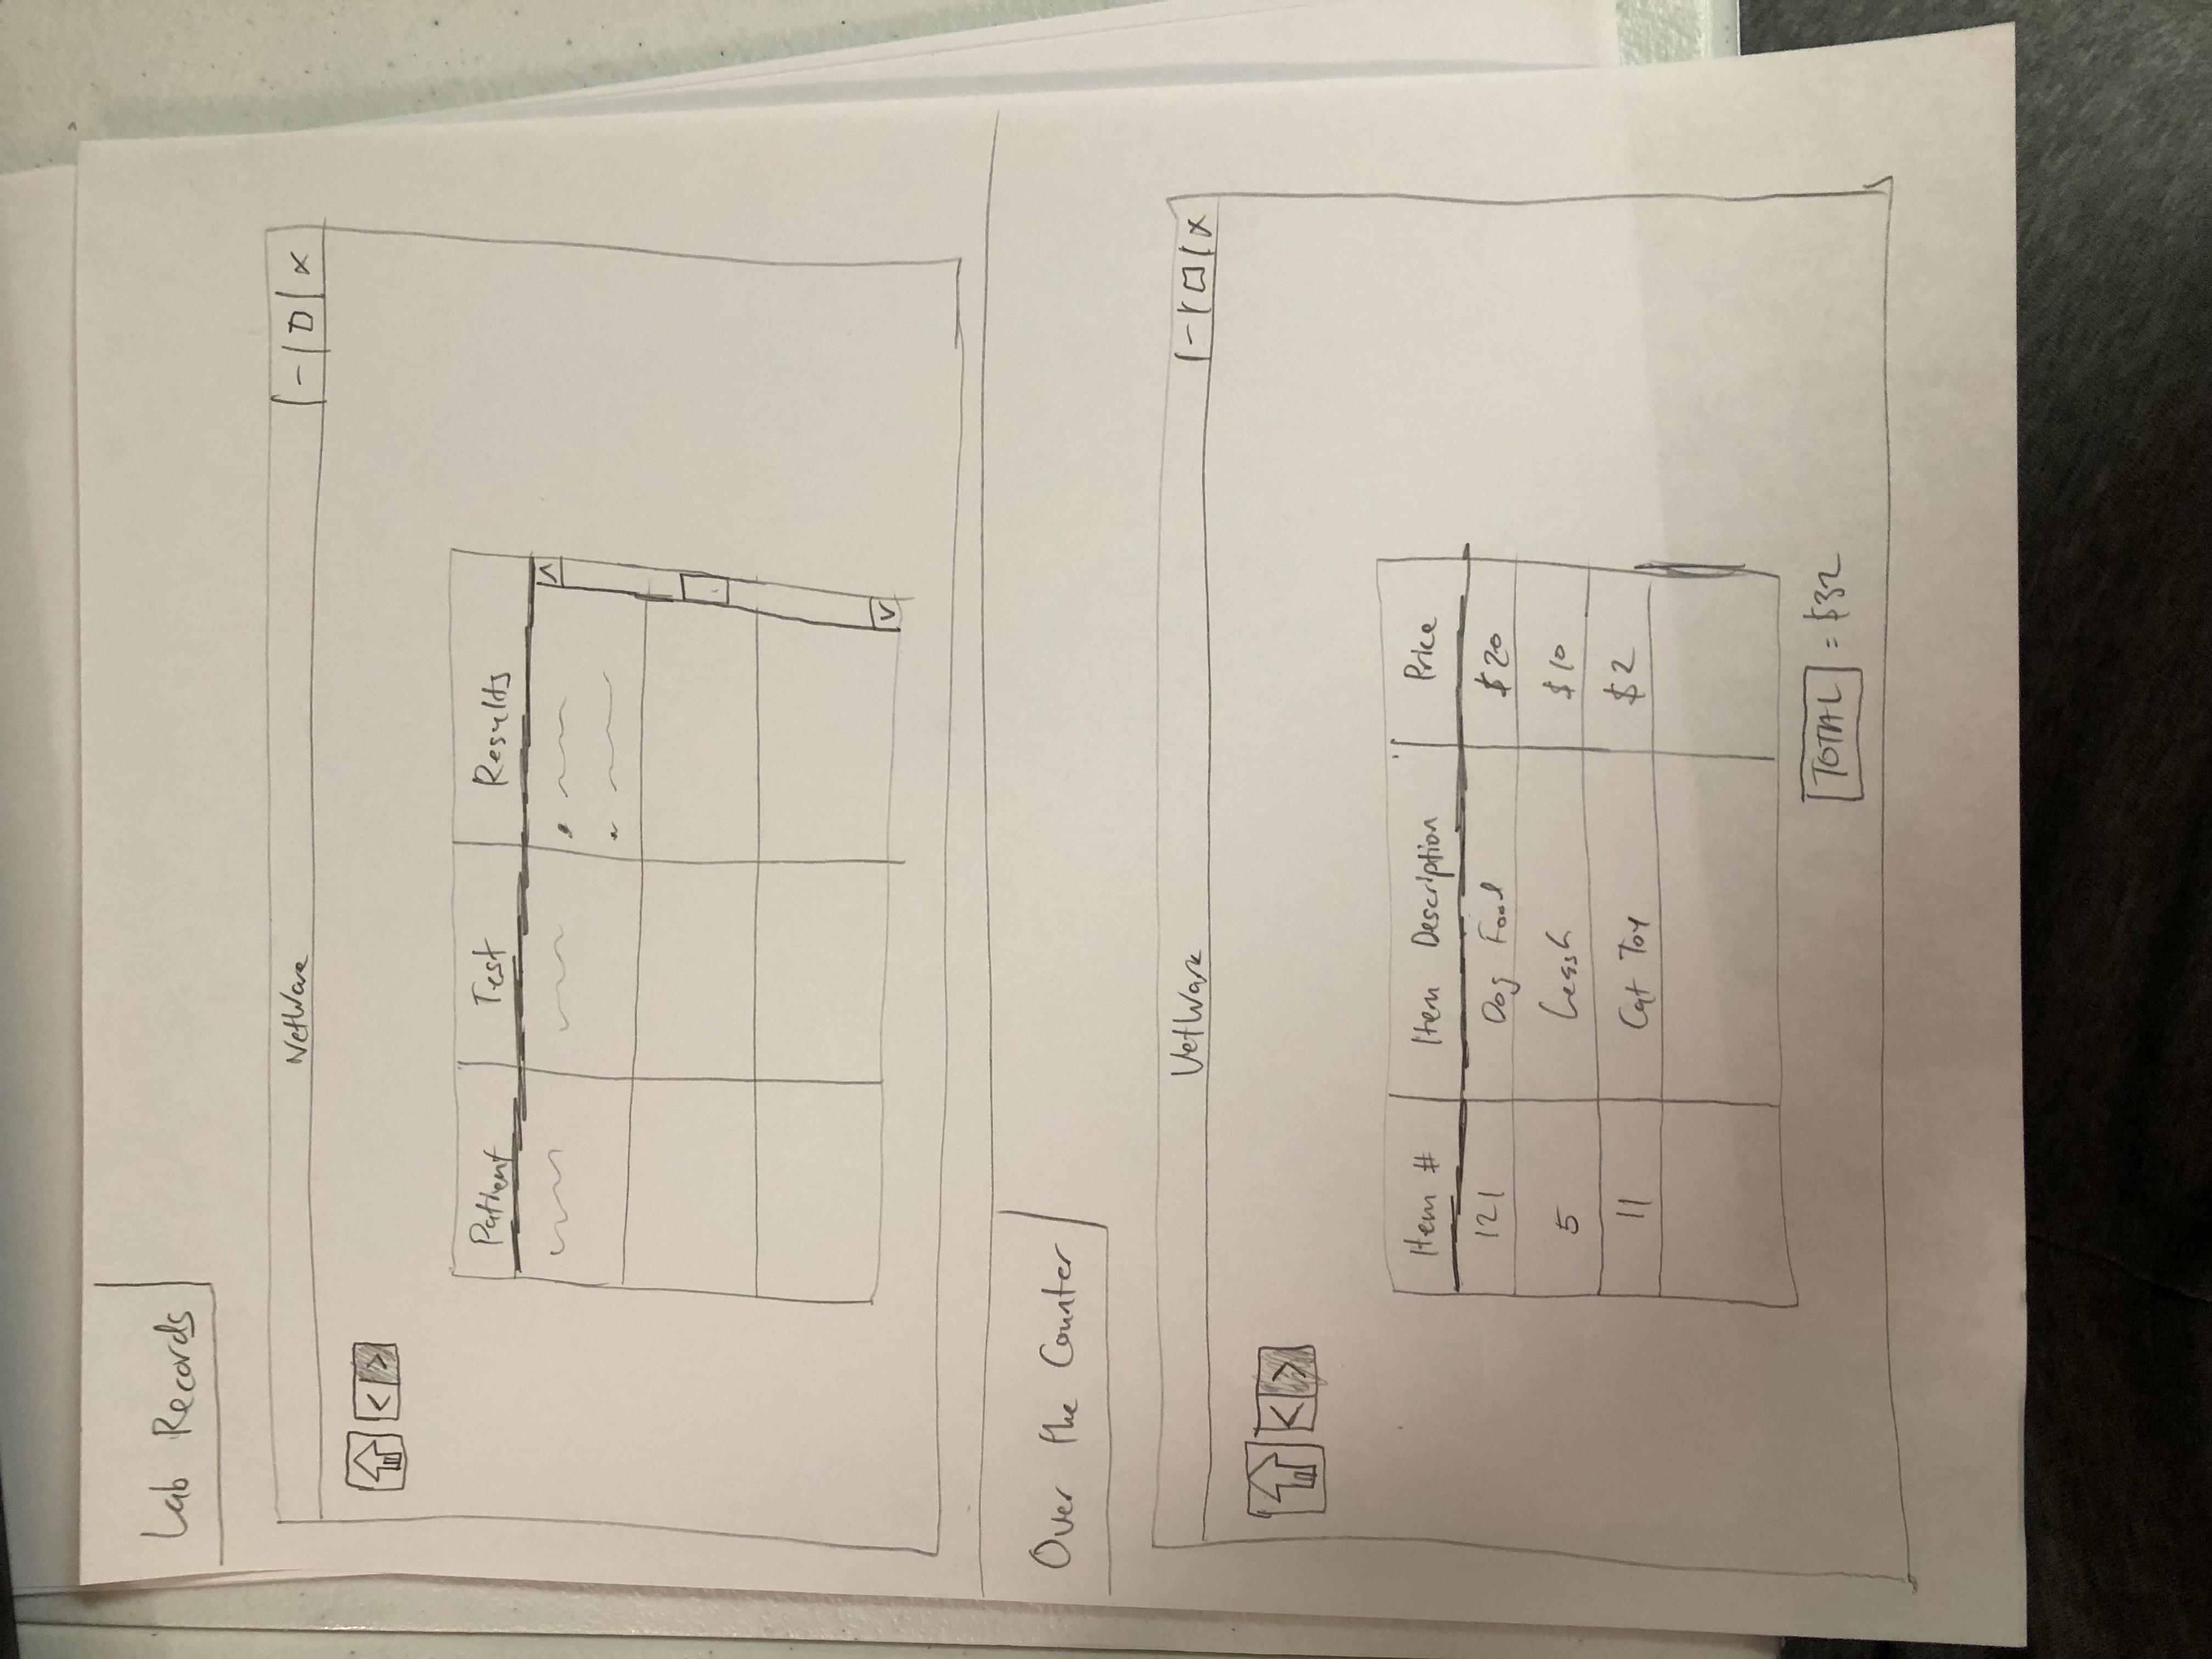 Lab Records
NetWare
- □ x
< >
Patient Test Results
^
v
Over the Counter
VetWare
- □ x
< >
Item # Item Description Price
121 Dog Food $20
5 Leash $10
11 Cat Toy $2
TOTAL = $32